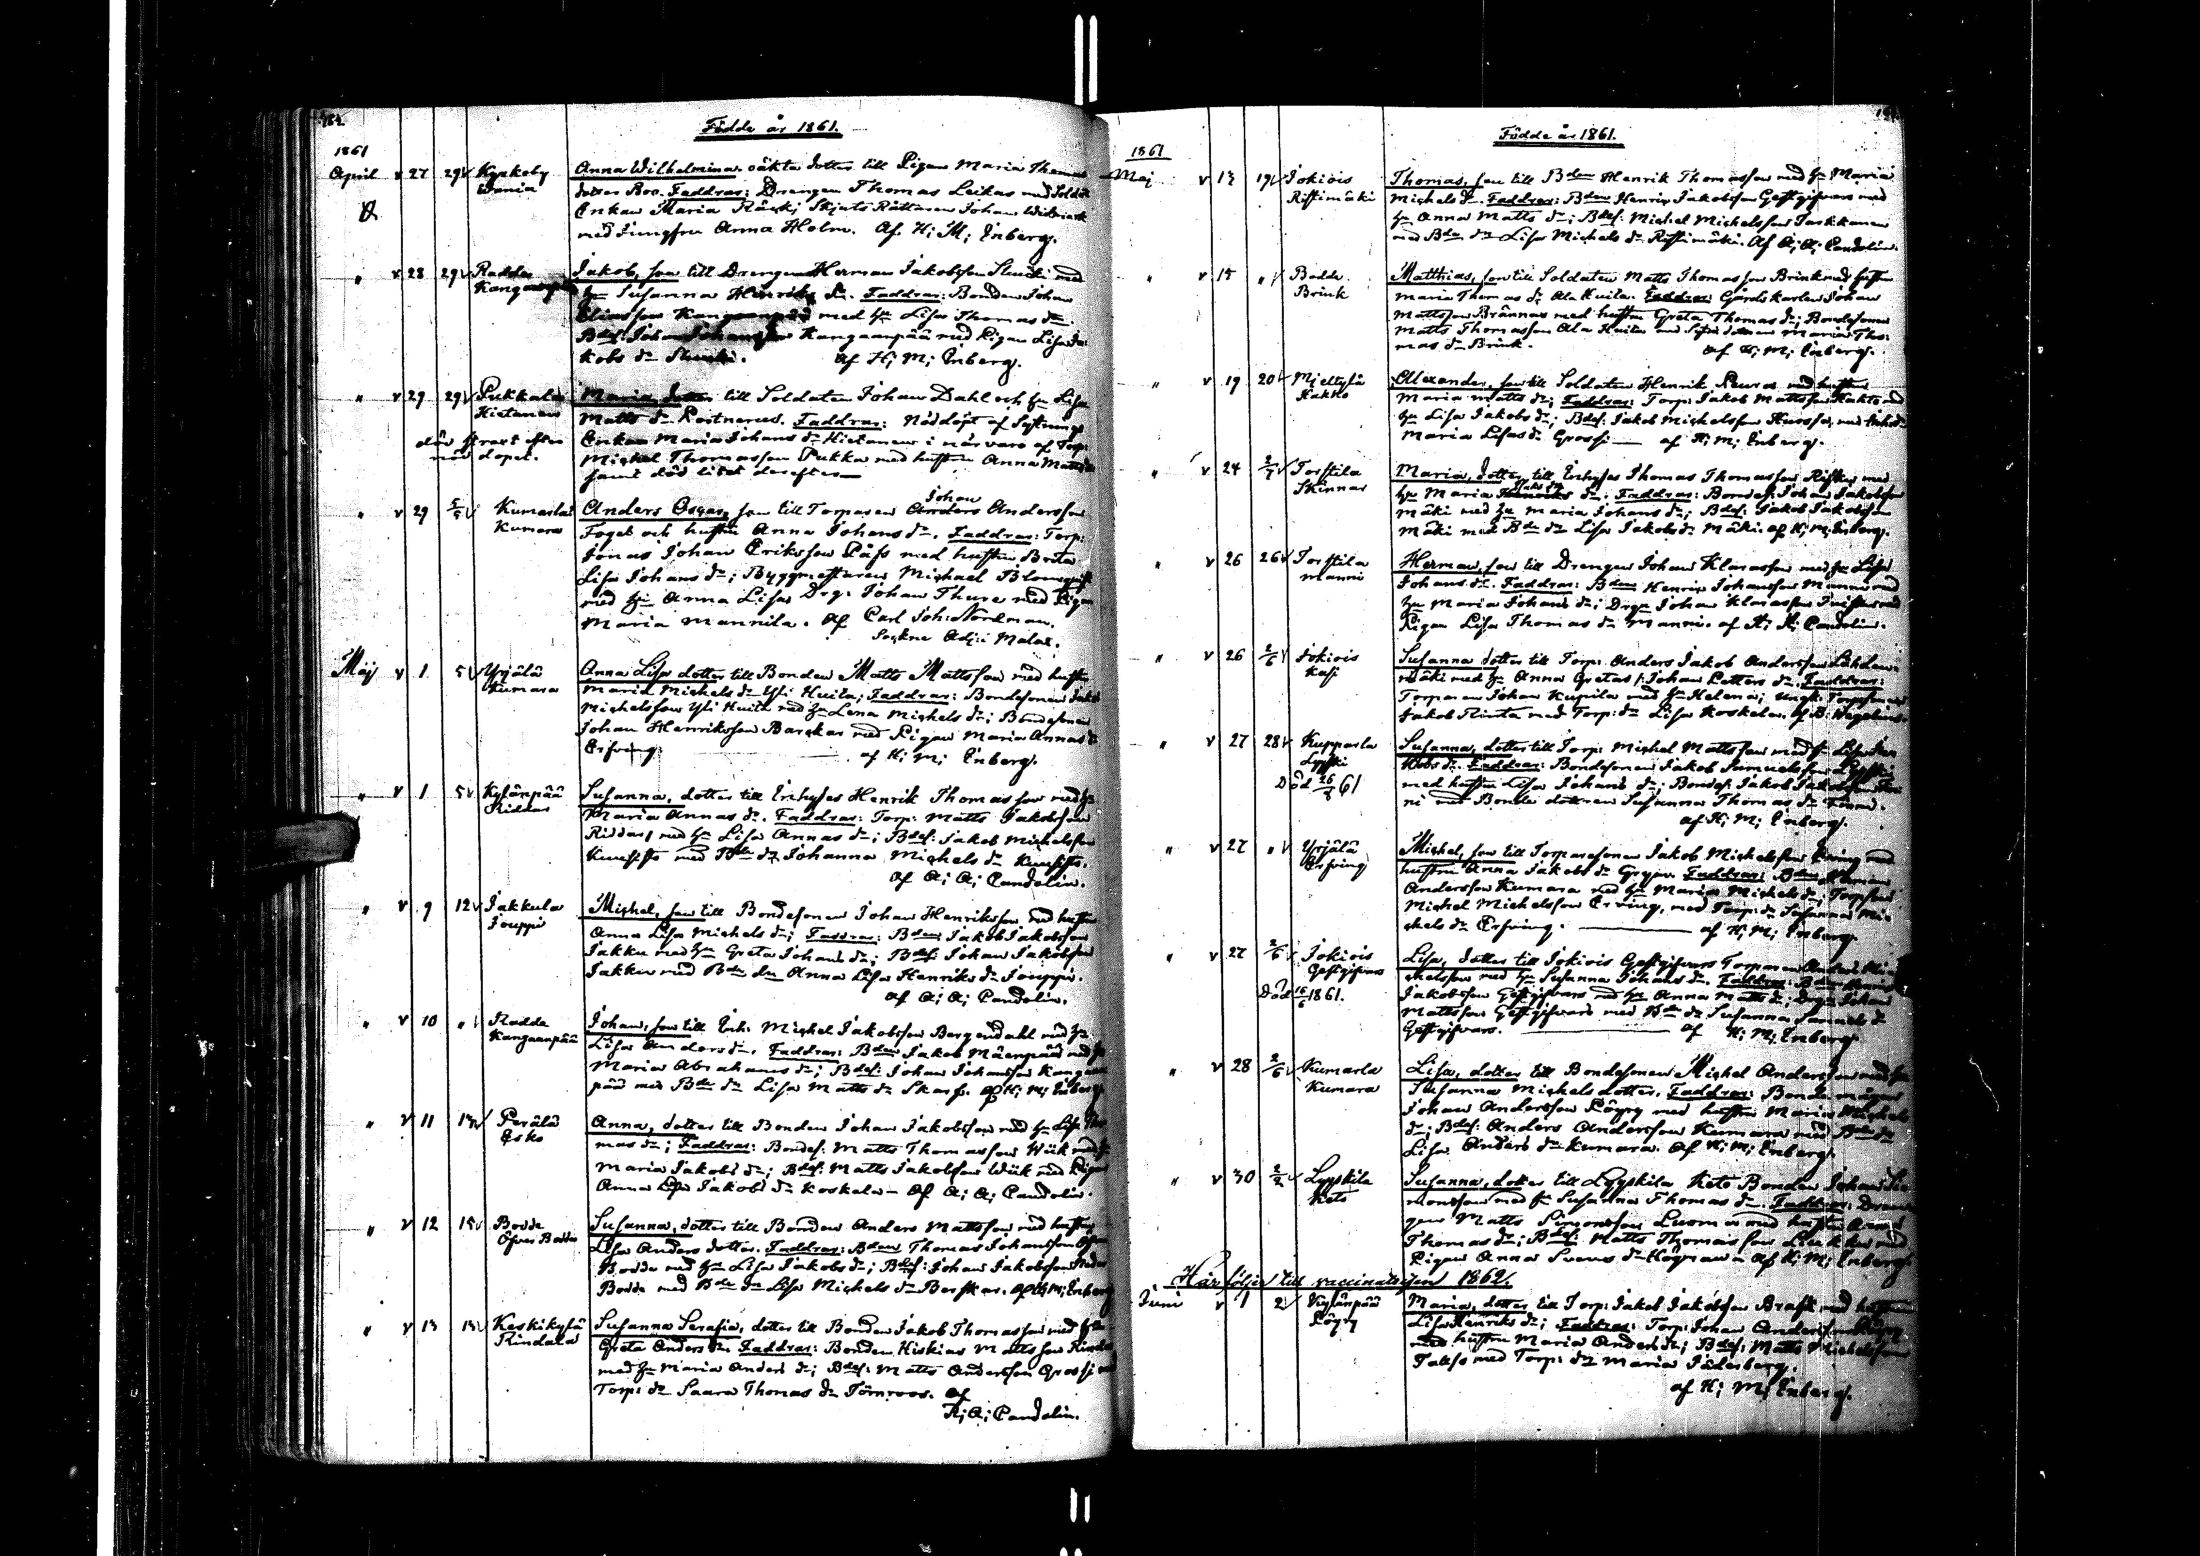 184.
Födde år 1861.
1861
April v 27 29 v Kyrkoby Wania Anna Wilhelmina oäkta dotter till Pigan Maria Thomas
dotter Boo. Faddrar: Drengen Thomas Leikas med Soldat
Enkan Maria Räck; Skjuts Rättaren Johan
med Jungfru Anna Holm. Af H; M; Enberg.
" v 28 29 v Radda Kangaanpää Jakob, son till Drengen Herman Jakobsson med
hu Susanna Henriks dr. Faddrar: Bonden Johan
Eliasson Kangaanpää med hu Lisa Thomas dr
Bdes: Johan Johansson Kangaanpää med Pigan Lisa Ja
kobs dr. af H; M; Enberg.
" v 29 29 v Pukkala Hietanen Maria dotter till Soldaten Johan Dahl och hu Lisa
Matts dr Faddrar: Nöddöpt af Sytnings
död strax efter Enkan Maria Johans dr Hietanen i närvaro af Torp:
nöddopet. Michel Thomasson Pukka med hustru Anna Matts
samt död litet derefter —
Johan
" v 29 5/5 v Kumarla Kumara Anders Oscar, son till Torparen Anders Andersson
Foget och hustru Anna Johans dr. Faddrar: Torp:
Jonas Johan Eriksson Påss med hustru Brita
Lisa Johans dr; Byggmästaren Michael Blomqvist
med hu Anna Lisa Drg: Johan Thure med Pigan
Maria Mannila. Af Carl Joh: Nordman.
Sockne Adj: i Malax.
Maj v 1 5 v Yrjälä Kumara Anna Lisa dotter till Bonden Matts Mattsson med hustru
Maria Michels dr Yli Huita; Faddrar: Bondesonen Jakob
Michelsson Yli Huita med hu Lena Michels dr; Bondesonen
Johan Henriksson Barckar med Pigan Maria Annas d
Erfving. af H; M; Enberg.
" v 1 5 v Kylänpää Riddar Susanna, dotter till Inhyses Henrik Thomasson med hu
Maria Annas dr. Faddrar: Torp: Matts Jakobsson
Riddar, med hu Lisa Annas dr; Bdes: Jakob Michelsson
med Bde dr Johanna Michels dr
af A; A; Candolin.
" v 9 12 v Jakkula Jouppi Michel, son till Bondesonen Johan Henriksson med hustru
Anna Lisa Michels dr; Faddrar: Bden Jakob Jakobsson
Jakku med hu Greta Johans dr; Bdes: Johan Jakobsson
Jakku med Bde dr Anna Lisa Henriks dr Jouppi.
af A; A; Candolin.
" v 10 " v Radda Kangaanpää Johan, son till Inh: Michel Jakobsson Bergendahl med hu
Lisa Anders dr. Faddrar: Bden Jakob Mäenpää med hu
Maria Abrahams dr; Bdes: Johan Johansson Kangaan
pää med Bde dr Lisa Matts dr Skarp. Af H; M; Enberg.
" v 11 v Perälä Esko Anna, dotter till Bonden Johan Jakobsson med hu Lisa Tho
mas dr; Faddrar: Bondes: Matts Thomasson Wiik med hu
Maria Jakobs dr; Bdes: Matts Jakobsson Wiik med Pigan
Anna Lisa Jakobs dr Koskela – Af A; A; Candolin.
" v 12 15 v Bodde Öfver Bodde Susanna, dotter till Bonden Anders Mattsson med hustru
Lisa Anders dotter. Faddrar: Bden Thomas Johansson Öfver
Bodde med hu Lisa Jakobs dr; Bdes: Johan Jakobsson Neder
Bodde med Bde dr Lisa Michels dr Af H; M; Enberg
" v 13 v Keskikylä Rindala Susanna Serafia, dotter till Bonden Jakob Thomasson med hu
Greta Anders dr. Faddrar: Bonden Hiskias Mattsson Rindala
med hu Maria Anders dr; Bdes: Matts Andersson Grossi med
Torp: dr Saara Thomas dr Törnroos. Af
A; A; Candolin.
Födde år 1861.
1861
Maj v 19 v Jokiois Ristimäki Thomas, son till Bden Henrik Thomasson med hu Maria
Michels dr. Faddrar: Bden Henrik Jakobsson Gästgifvars med
hu Anna Matts dr; Bdes: Michel Michelsson
med Bde dr Lisa Michels dr Ristimäki. Af A; A; Candolin.
" v 15 " v Bodde Brink Matthias, son till Soldaten Matts Thomasson Brink med hustru
Maria Thomas dr Ala Huita. Faddrar: Gårdskarlen Johan
Mattsson Brännas med hustru Greta Thomas dr; Bondesonen
Matts Thomasson Ala Huita med Maria Tho-
mas dr Brink. af H; M; Enberg.
" v 19 20 v Mjeltylä Kakko Alexander, son till Soldaten Henrik med hustru
Maria Matts dr; Faddrar: Torp: Jakob Mattsson Kakko med
hu Lisa Jakobs dr; Bdes: Jakob Michelsson
Maria Lisas dr Grossi — af H; M; Enberg.
" v 24 v Torstila Skinnar Maria, dotter till Inhyses Thomas Thomasson med
hu Maria dr. Faddrar: Bondes: Johan Jakobsson
Mäki med hu Maria Johans dr; Bdes: Jakob Jakobsson
Mäki med Bde dr Lisa Jakobs dr Mäki. af H; M; Enberg.
" v 26 26 v Torstila Manni Herman, son till Drengen Johan Klarasson med hu Lisa
Johans dr. Faddrar: Bden Henrik Johansson Manni med
hu Maria Johans dr; Drgn Johan Klarasson med
Pigan Lisa Thomas dr Manni. af A; A; Candolin.
" v 26 2/6 v Jokiois Kasi Susanna dotter till Torp: Anders Jakob Andersson
mäki med hu Anna Gretas /: Johan Petters dr. Faddrar:
Torparen Johan Kupila med hu Helena; Torpson
Jakob Rinta med Torp: dr Lisa Koskela. Af B: Wegelius
" v 27 28 v Kupparla Lyyski Susanna, dotter till Torp: Michel Mattsson med hu Lisa Ja
kobs dr. Faddrar: Bondesonen Jakob Samuelsson
Död 61 med hustru Lisa Johans dr; Bondes: Jakob Jakobsson
ni med Bonde dottren Susanna Thomas dr
af H; M; Enberg.
" v 27 " v Yrjälä Erfving Michel, son till Torparesonen Jakob Michelsson Erfving med
hustru Anna Jakobs dr Faddrar: Bden Herman
Andersson Kumara med hu Maria Michels dr; Torpson
Michel Michelsson Erving, med Torp: dr Susanna Mi-
chels dr Erfving. — af H; M; Enberg.
" v 27 2/6 v Jokiois Gästgifvars Lisa, dotter till Jokiois Gästgifvars Torparen Anders Mi
chelsson med hu Susanna Johans dr. Faddrar: Bden Henrik
Död 1861. Jakobsson Gästgifvars med hu Anna Matts dr; Drgn Johan
Mattsson Gästgifvars med Bde dr Susanna Samuels dr
Gästgifvars. — af H; M; Enberg
" v 28 2/6 v Kumarla Kumara Lisa, dotter till Bondesonen Michel Andersson med hu
Susanna Michels dotter. Faddrar: Bonde mågen
Johan Andersson Pögry med hustru Maria Michels
dr; Bdes: Anders Andersson Kumara med Bde dr
Lisa Anders dr Kumara. Af H; M; Enberg.
" v 30 v Lyyskilä Keto Susanna, dotter till Lyyskilä Keto Bonden Johan Si
monsson med hu Susanna Thomas dr. Faddrar: Dren
gen Matts Simonsson Luoma med hustru Anna
Thomas dr; Bdes: Matts Thomasson med
Pigan Anna Svens dr Högman – Af H; M; Enberg.
Här följer till vaccinationen 1862.
Juni v 1 2 v Kylänpää Pögry Maria, dotter till Torp: Jakob Jakobsson Brask med hustru
Lisa Henriks dr; Faddrar: Torp: Johan Andersson Pögry
med hustru Maria Anders dr; Bdes: Matts Michelsson
med Torp: dr Maria Söderberg.
af H; M; Enberg.